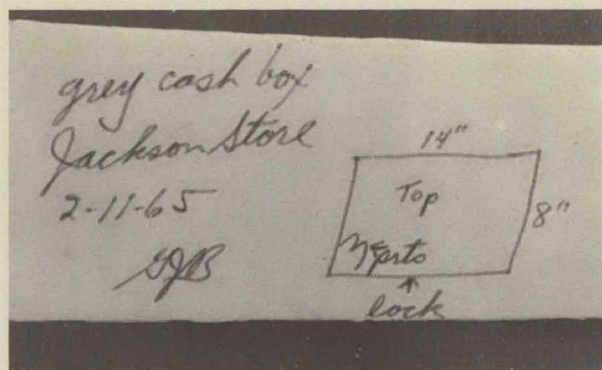 grey cash box
Jackson Store
2-11-65
14"
Top
8"
lock